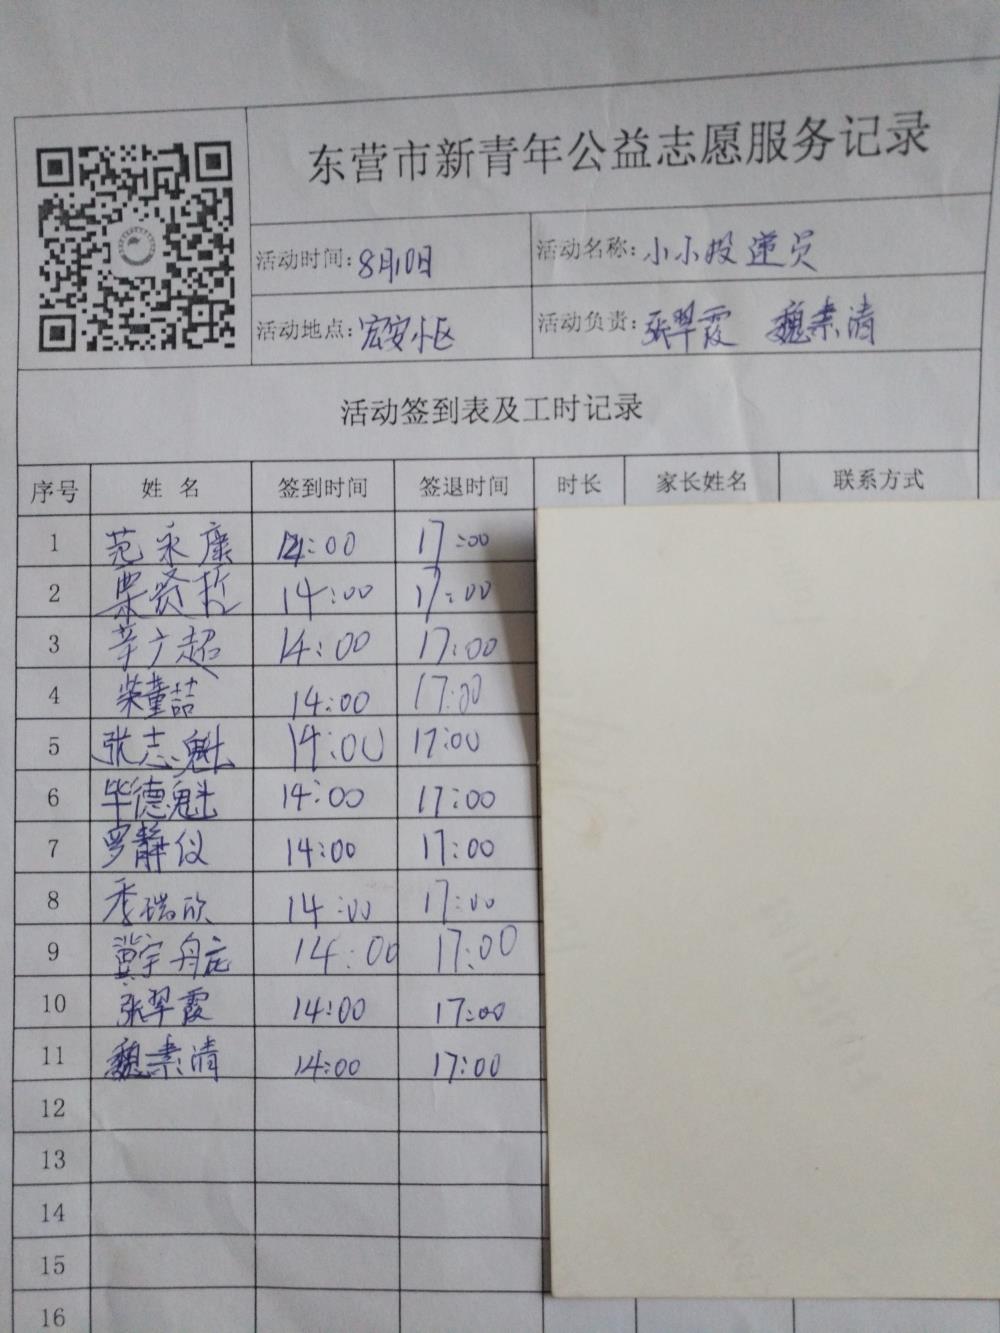 东营市新青年公益志愿服务记录
活动时间：8月10日 活动名称：小小投递员
活动地点：宏安小区 活动负责：张翠霞 魏素清
活动签到表及工时记录
序号 姓名 签到时间 签退时间 时长 家长姓名 联系方式
1 范永康 14:00 17:00
2 栗贤哲 14:00 17:00
3 辛广超 14:00 17:00
4 柴童喆 14:00 17:00
5 张志魁 14:00 17:00
6 毕德魁 14:00 17:00
7 罗静仪 14:00 17:00
8 季瑞欣 14:00 17:00
9 冀宇舟 14:00 17:00
10 张翠霞 14:00 17:00
11 魏素清 14:00 17:00
12
13
14
15
16